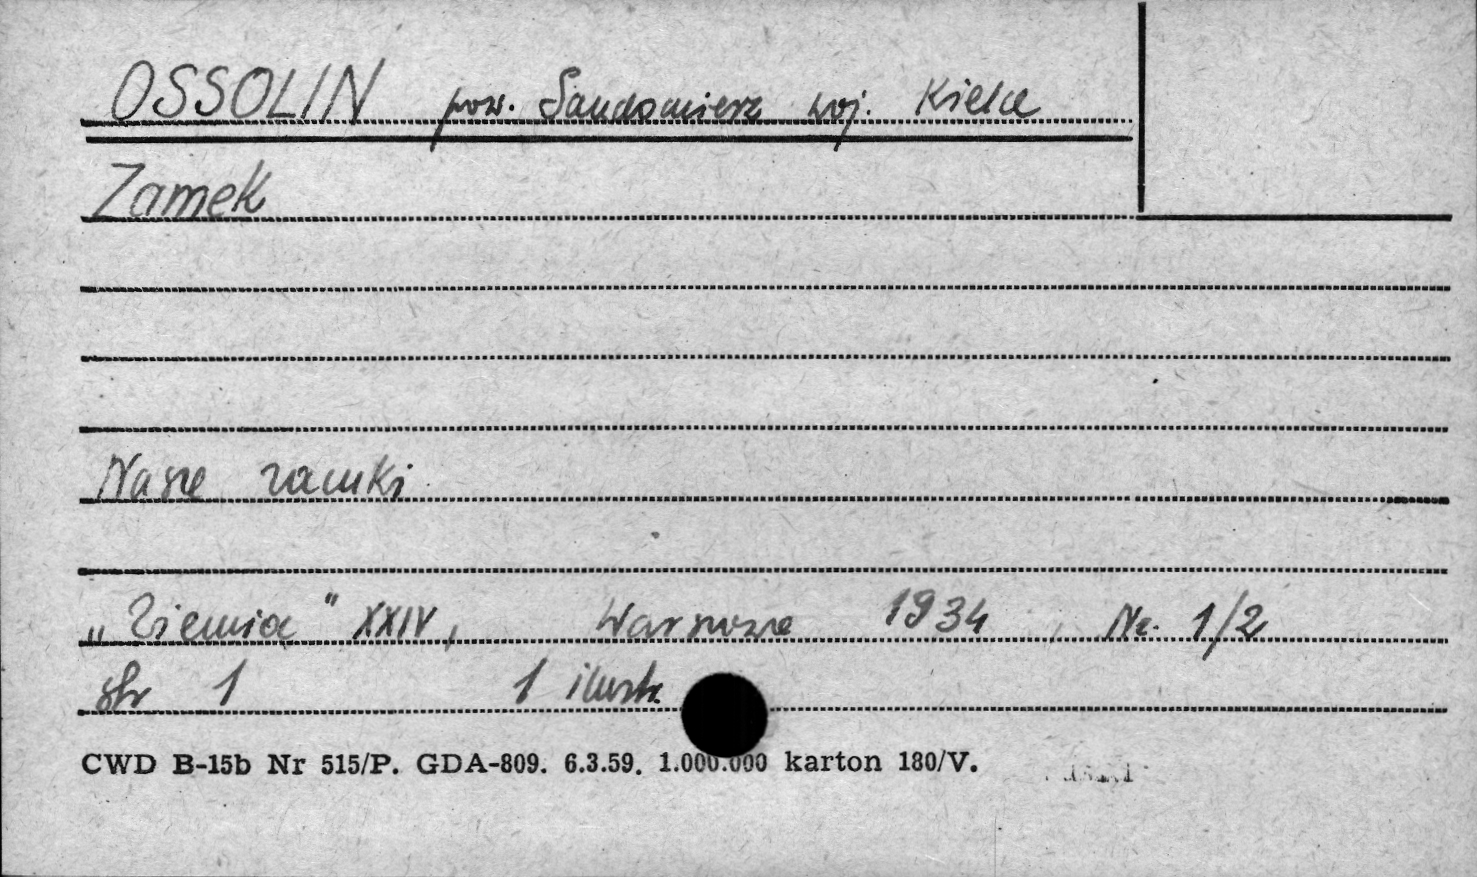 OSSOLIN pow. Sandomierz woj. Kielce
Zamek
Nasze zamki
„Ziemia" XXIV, Warszawa 1934, Nr. 1/2
str 1 1 ilustr.
CWD B-15b Nr 515/P. GDA-809. 6.3.59. 1.000.000 karton 180/V.